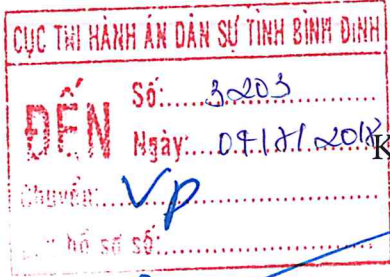 CỤC THI HÀNH ÁN DÂN SỰ TỈNH BÌNH ĐỊNH
ĐẾN
Số:.....3203
Ngày:
Chuyển:.....VP
hồ sơ số:
K